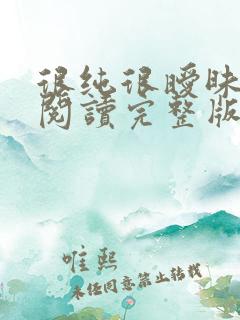 很纯很暧昧
閱讀完整版
唯熙
未经同意禁止转载